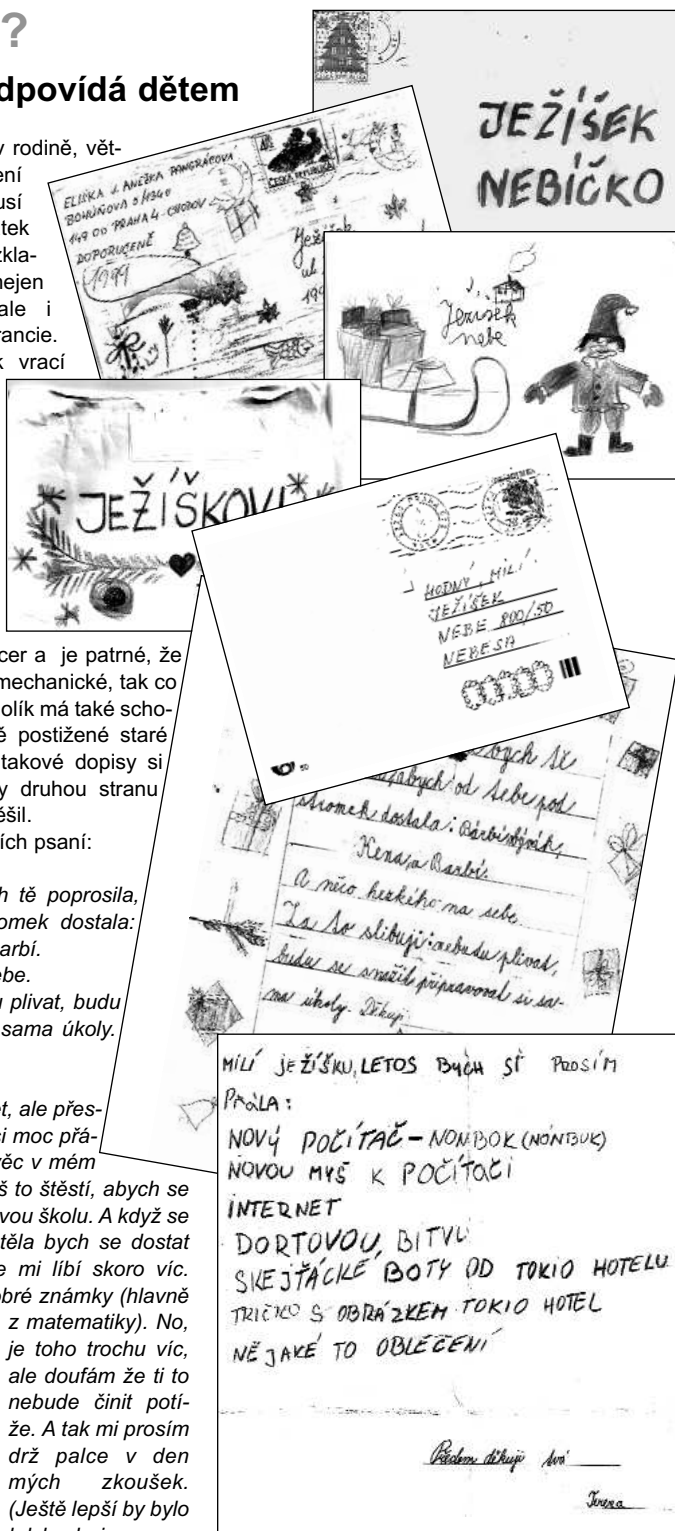 ?
dpovídá dětem
v rodině, vět-
ení
usí
tek
zkla-
nejen
ale i
rancie.
k vrací
cer a je patrné, že
mechanické, tak co
olík má také scho-
ě postižené staré
takové dopisy si
y druhou stranu
ěšil.
ích psaní:
h tě poprosila,
omek dostala:
arbí.
ebe.
u plivat, budu
sama úkoly.
et, ale přes-
si moc přá-
věc v mém
š to štěstí, abych se
vou školu. A když se
těla bych se dostat
e mi líbí skoro víc.
obré známky (hlavně
z matematiky). No,
je toho trochu víc,
ale doufám že ti to
nebude činit potí-
že. A tak mi prosím
drž palce v den
mých zkoušek.
(Ještě lepší by bylo
JEŽÍŠEK
NEBÍČKO
ELIŠKA J. ANEŽKA PANGRÁCOVÁ
149 00 PRAHA 4 - CHODOV
DOPORUČENĚ
1999
ČESKÁ REPUBLIKA
Ježíšek
ul.
199
Ježíšek
nebe
JEŽÍŠKOVI
HODNÝ, MILÍ
JEŽÍŠEK
NEBE 800/50
NEBESA
50
bych tě
abych od tebe pod
stromek dostala: Bárbí
Kena a Barbí.
A něco hezkého na sebe.
Za to slibuji: nebudu plivat,
budu se snažit připravovat si sa-
ma úkoly. Děkuji
MILÍ JEŽÍŠKU, LETOS BYCH SŤ PROSÍM
PŘÁLA:
NOVÝ POČÍTAČ - NONBOK (NONBUK)
NOVOU MYŠ K POČÍTAČI
INTERNET
DORTOVOU BITVU
SKEJŤÁCKÉ BOTY OD TOKIO HOTELU
TRIČKO S OBRÁZKEM TOKIO HOTEL
NĚJAKÉ TO OBLEČENÍ
Předem děkuji tvá
Tereza